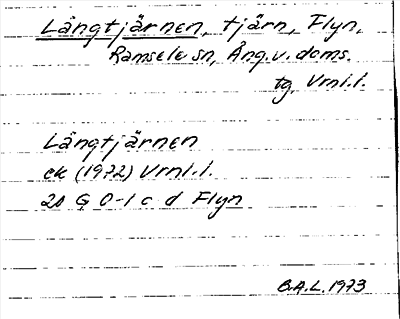 Långtjärnen, tjärn, Flyn,
Ramsele sn, Ång.v. doms.
tg, Vrnl.l.
Långtjärnen
ek (1972) Vrnl.l.
20 G 0-1 c d Flyn
B.A.L. 1973